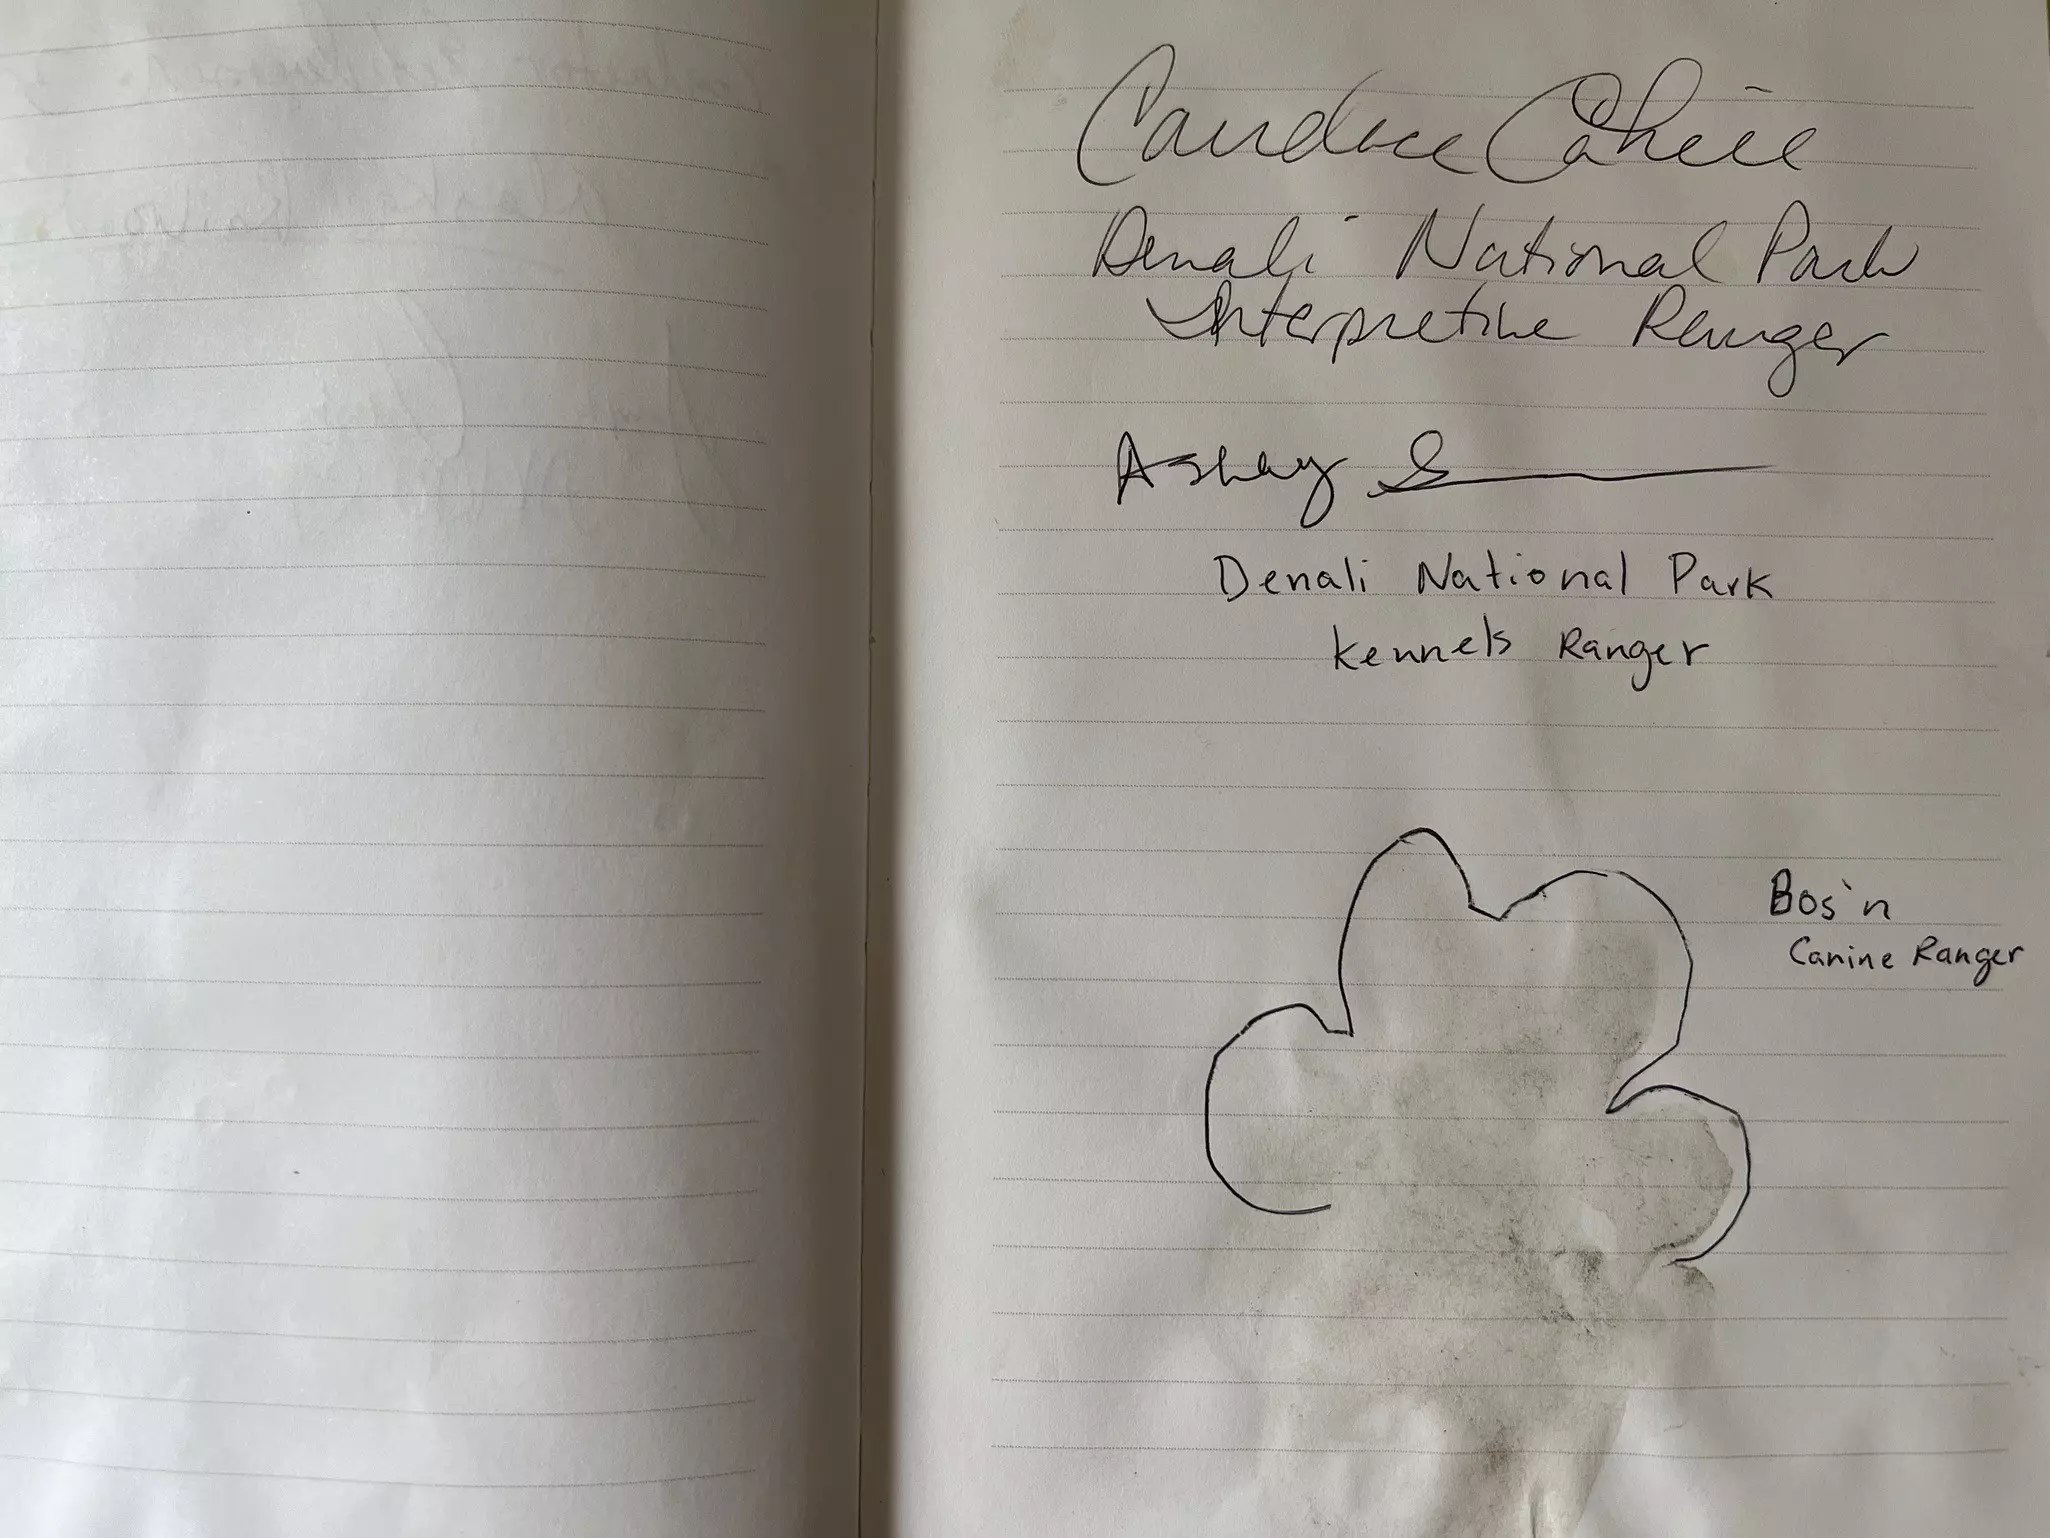 Candice Cahill
Denali National Park
Interpretive Ranger
Ashley
Denali National Park
Kennels Ranger
Bos'n
Canine Ranger